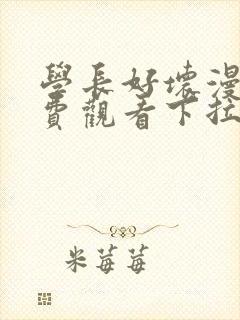 學長好壞漫
費觀看下拉
米莓莓